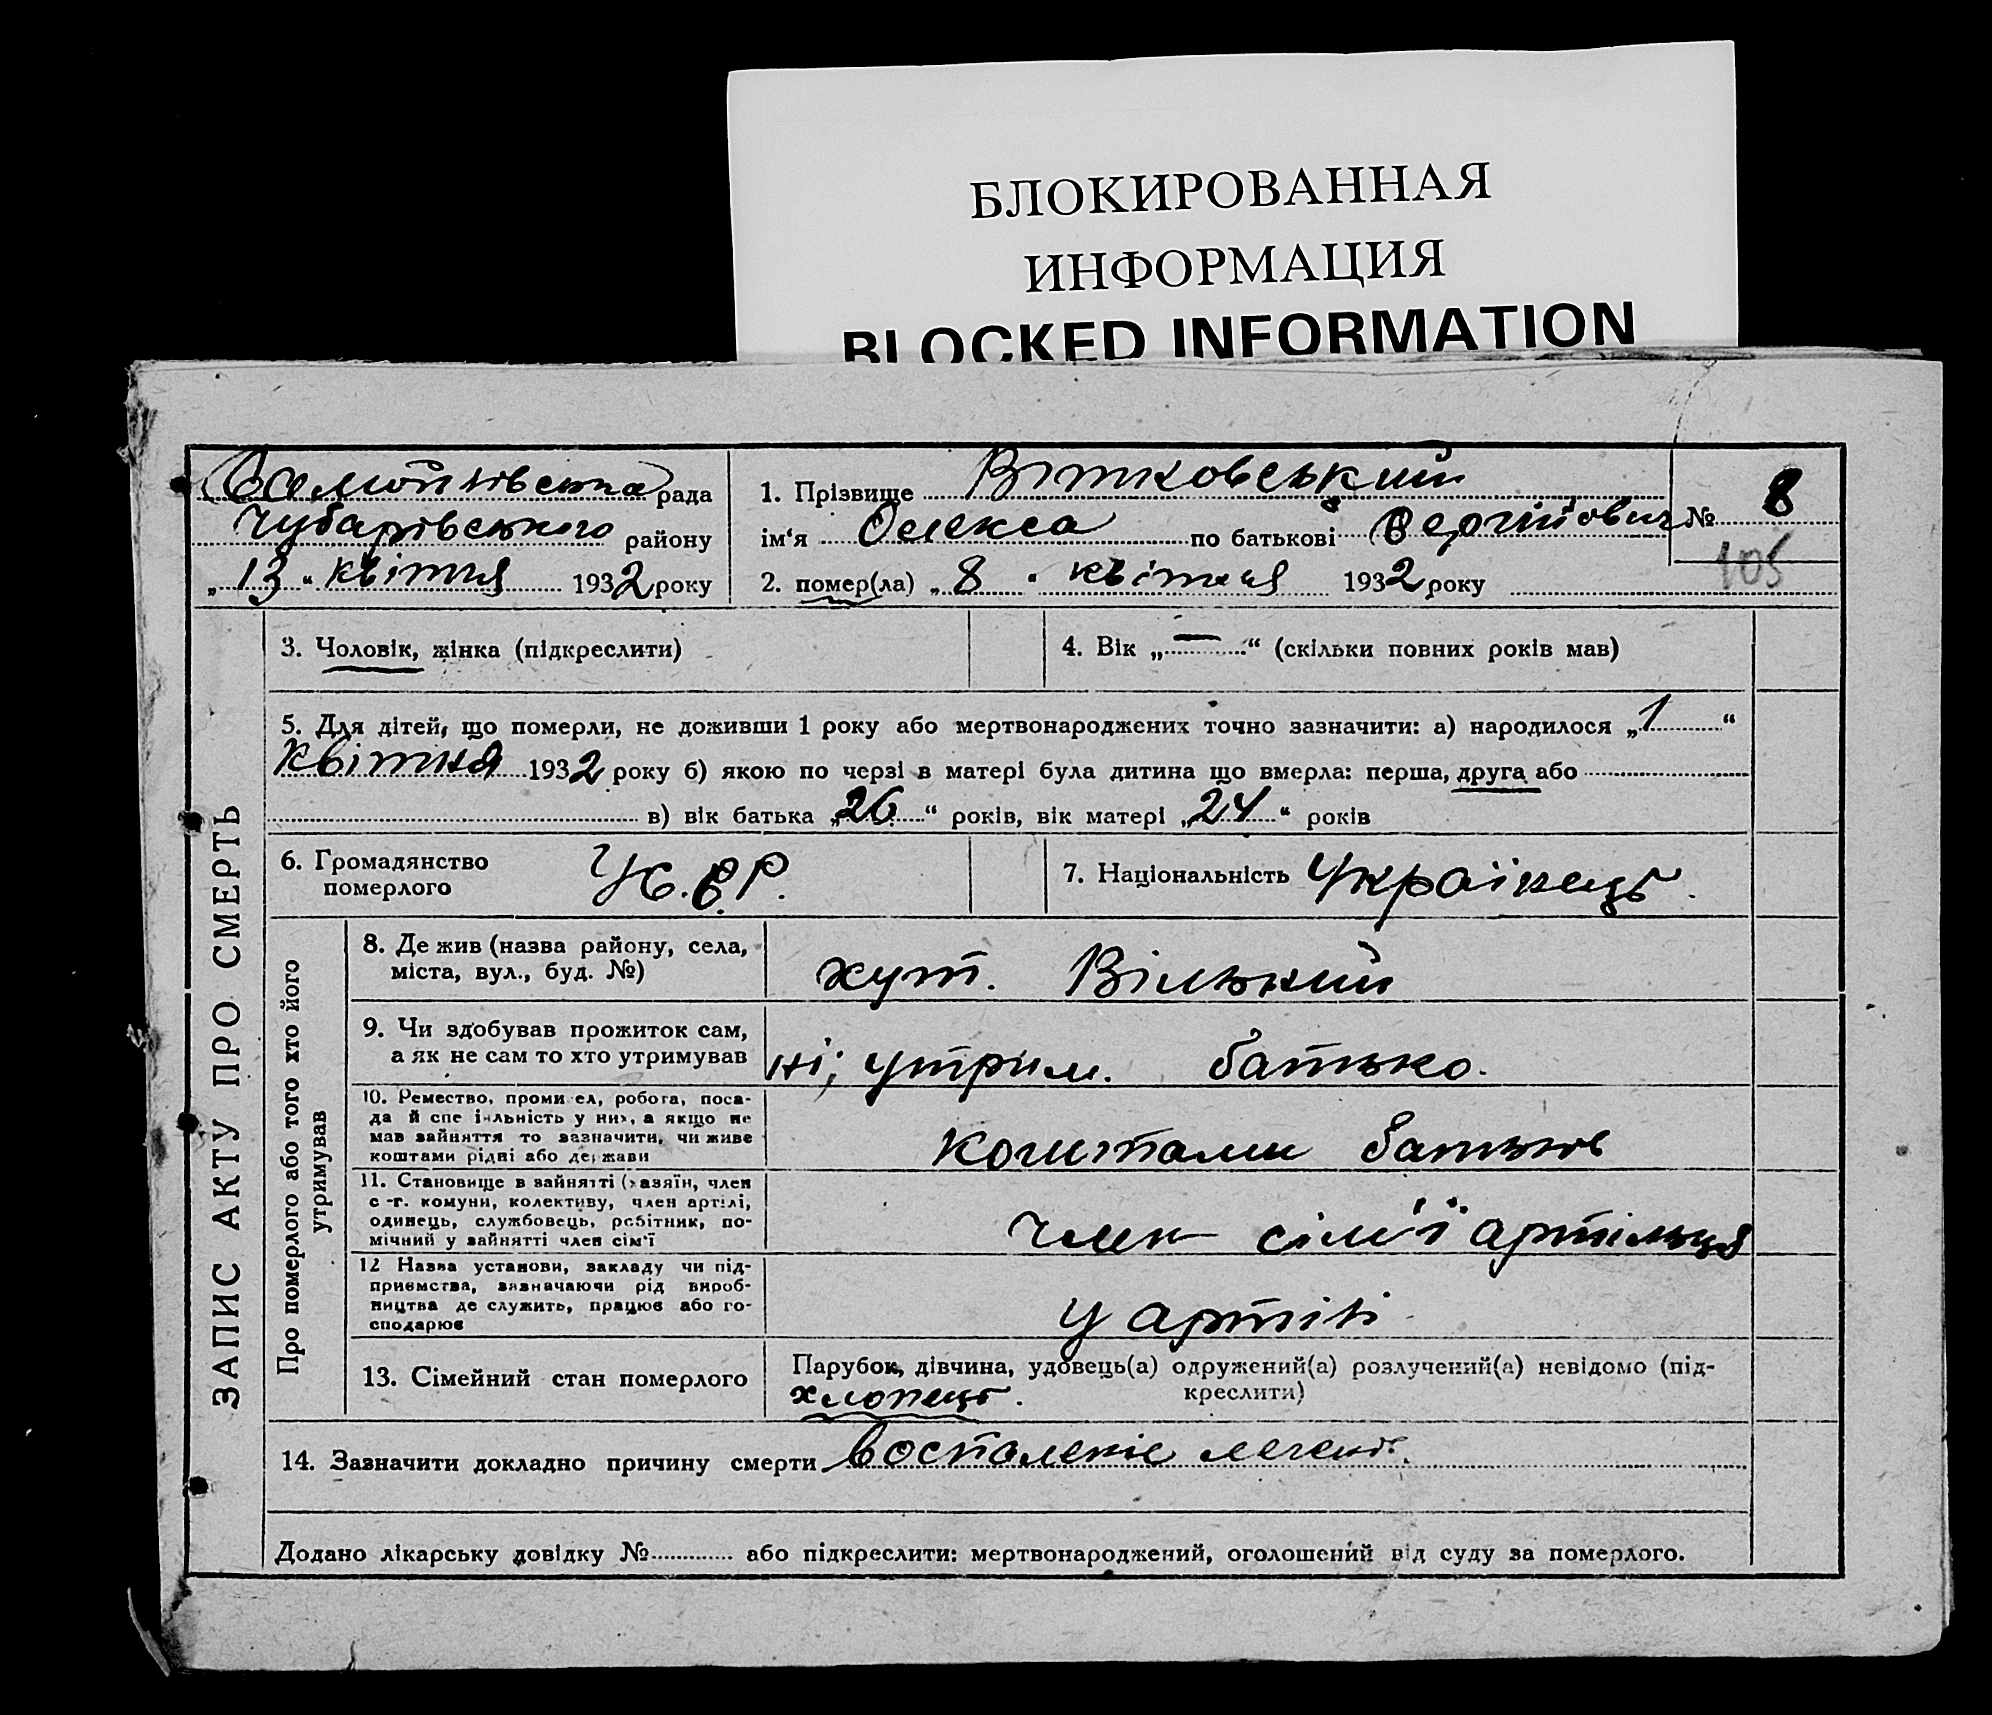 БЛОКИРОВАННАЯ
ИНФОРМАЦИЯ
BLOCKED INFORMATION
рада
Чубарівського району
„13“ квітня 1932 року
1. Прізвище Вітковський
ім‘я Олекса по батькові Сергійович
2. помер(ла) „8“ квітня 1932 року
№ 8
105
ЗАПИС АКТУ ПРО СМЕРТЬ
3. Чоловік, жінка (підкреслити)
4. Вік „—“ (скільки повних років мав)
5. Для дітей, що померли, не доживши 1 року або мертвонароджених точно зазначити: а) народилося „1“
квітня 1932 року б) якою по черзі в матері була дитина що вмерла: перша, друга або
в) вік батька „26“ років, вік матері „24“ років
6. Громадянство
померлого
У.С.Р.
7. Національність Українець.
Про померлого або того хто його
утримував
8. Де жив (назва району, села,
міста, вул., буд. №)
хут. Вільний
9. Чи здобував прожиток сам,
а як не сам то хто утримував
ні; утрим. батько.
10. Ремество, промисел, робота, поса-
да й спеціяльність у них, а якщо не
мав зайняття то зазначити, чи живе
коштами рідні або держави
коштами батьків
11. Становище в зайнятті (хазяїн, член
с-г. комуни, колективу, член артілі,
одинець, службовець, робітник, по-
мічний у зайнятті член сім'ї
член сім'ї артільця
12 Назва установи, закладу чи під-
приємства, зазначаючи рід вироб-
ництва де служить, працює або го-
сподарює
у артілі
13. Сімейний стан померлого
Парубок, дівчина, удовець(а) одружений(а) розлучений(а) невідомо (під-
креслити)
хлопець.
14. Зазначити докладно причину смерти воспаленіє легень.
Додано лікарську довідку № або підкреслити: мертвонароджений, оголошений від суду за померлого.